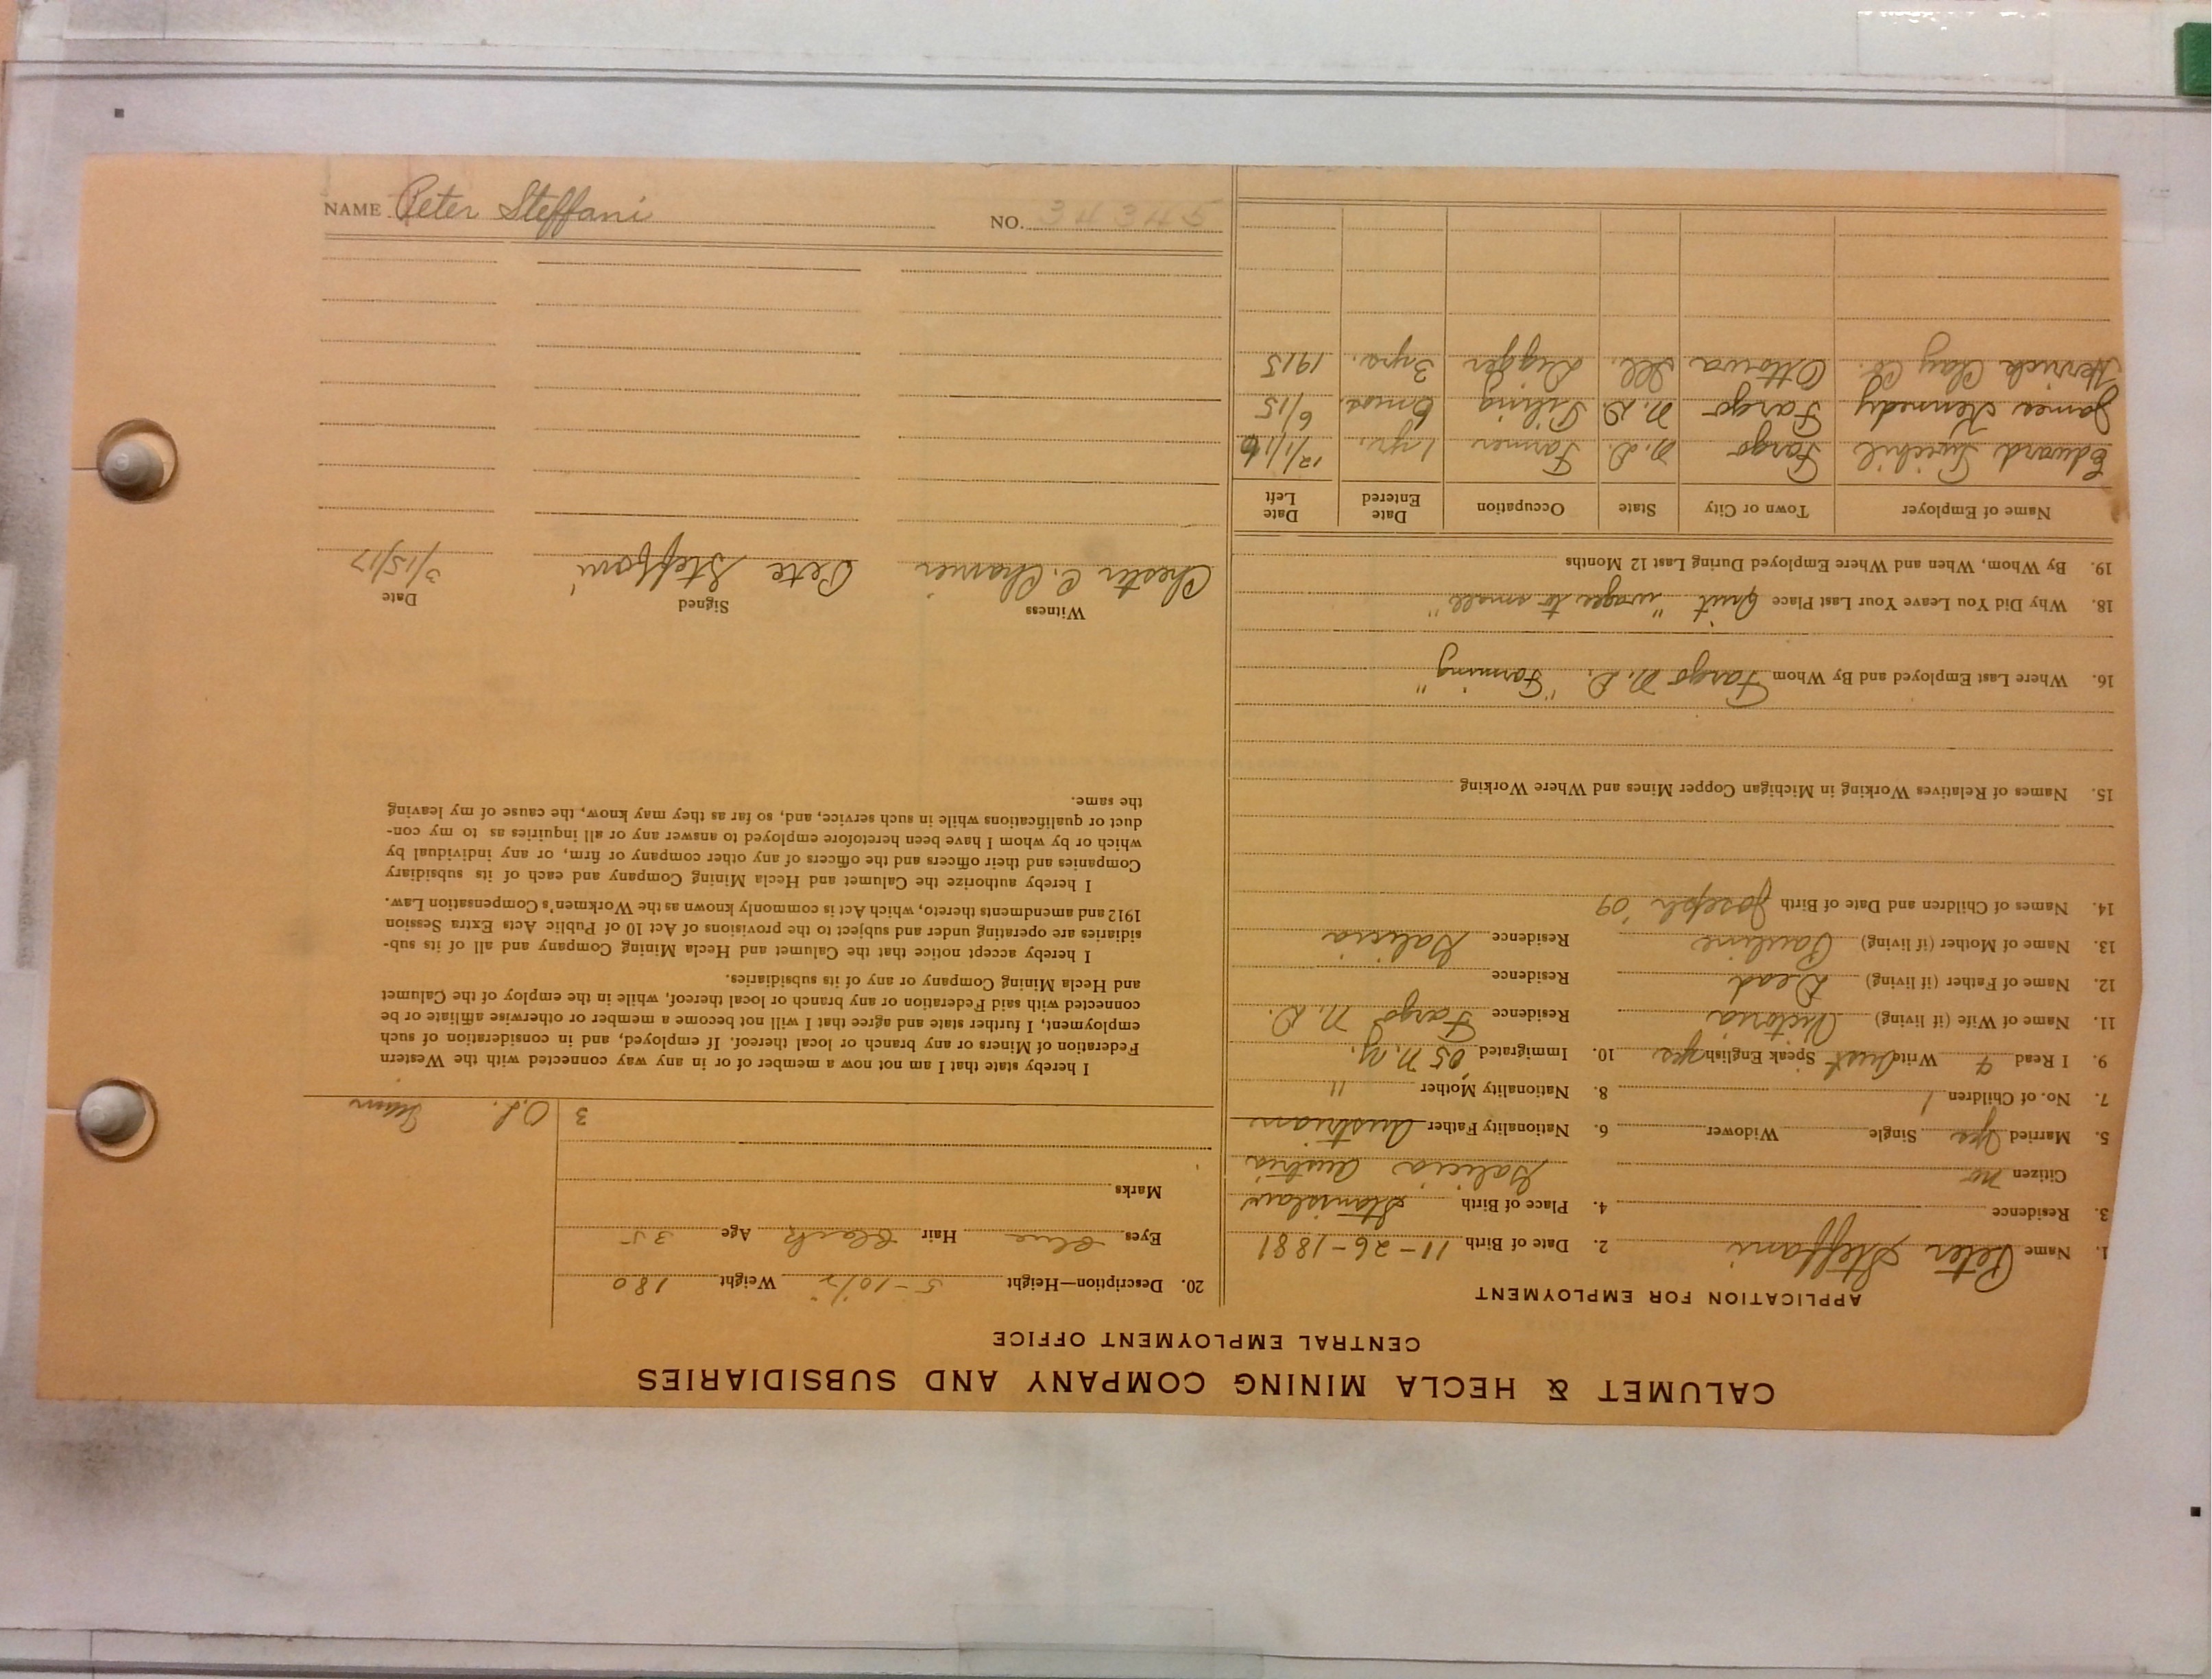 CALUMET & HECLA MINING COMPANY AND SUBSIDIARIES
CENTRAL EMPLOYMENT OFFICE
APPLICATION FOR EMPLOYMENT
1. Name Peter Steffani 2. Date of Birth 11-26-1881
3. Residence 4. Place of Birth Stanislaw
Citizen no Galicia Austria
5. Married Yes Single Widower 6. Nationality Father Austrian
7. No. of Children 1 8. Nationality Mother "
9. I Read Write Speak English yes 10. Immigrated '05 N.Y.
11. Name of Wife (if living) Victoria Residence Fargo N.D.
12. Name of Father (if living) Dead Residence
13. Name of Mother (if living) Pauline Residence Galicia
14. Names of Children and Date of Birth Joseph '09
15. Names of Relatives Working in Michigan Copper Mines and Where Working
16. Where Last Employed and By Whom Fargo N.D. "Farming"
18. Why Did You Leave Your Last Place Quit "wages to small"
19. By Whom, When and Where Employed During Last 12 Months
Name of Employer Town or City State Occupation Date Entered Date Left
Edward Fargo N.D. Farmer 1 yr. 12/1/16
James Kennedy Fargo N.D. Piling 6 mos. 6/15
Clay Co. Ottowa Ill. Digger 3 yrs. 1915
20. Description—Height 5-10½" Weight 180
Eyes Blue Hair Black Age 35
Marks
3 O.L.
I hereby state that I am not now a member of or in any way connected with the Western
Federation of Miners or any branch or local thereof. If employed, and in consideration of such
employment, I further state and agree that I will not become a member or otherwise affiliate or be
connected with said Federation or any branch or local thereof, while in the employ of the Calumet
and Hecla Mining Company or any of its subsidiaries.
I hereby accept notice that the Calumet and Hecla Mining Company and all of its sub-
sidiaries are operating under and subject to the provisions of Act 10 of Public Acts Extra Session
1912 and amendments thereto, which Act is commonly known as the Workmen's Compensation Law.
I hereby authorize the Calumet and Hecla Mining Company and each of its subsidiary
Companies and their officers and the officers of any other company or firm, or any individual by
which or by whom I have been heretofore employed to answer any or all inquiries as to my con-
duct or qualifications while in such service, and, so far as they may know, the cause of my leaving
the same.
Witness Signed Date
Chester C. Pete Steffani 3/15/17
NAME Peter Steffani NO. 34345